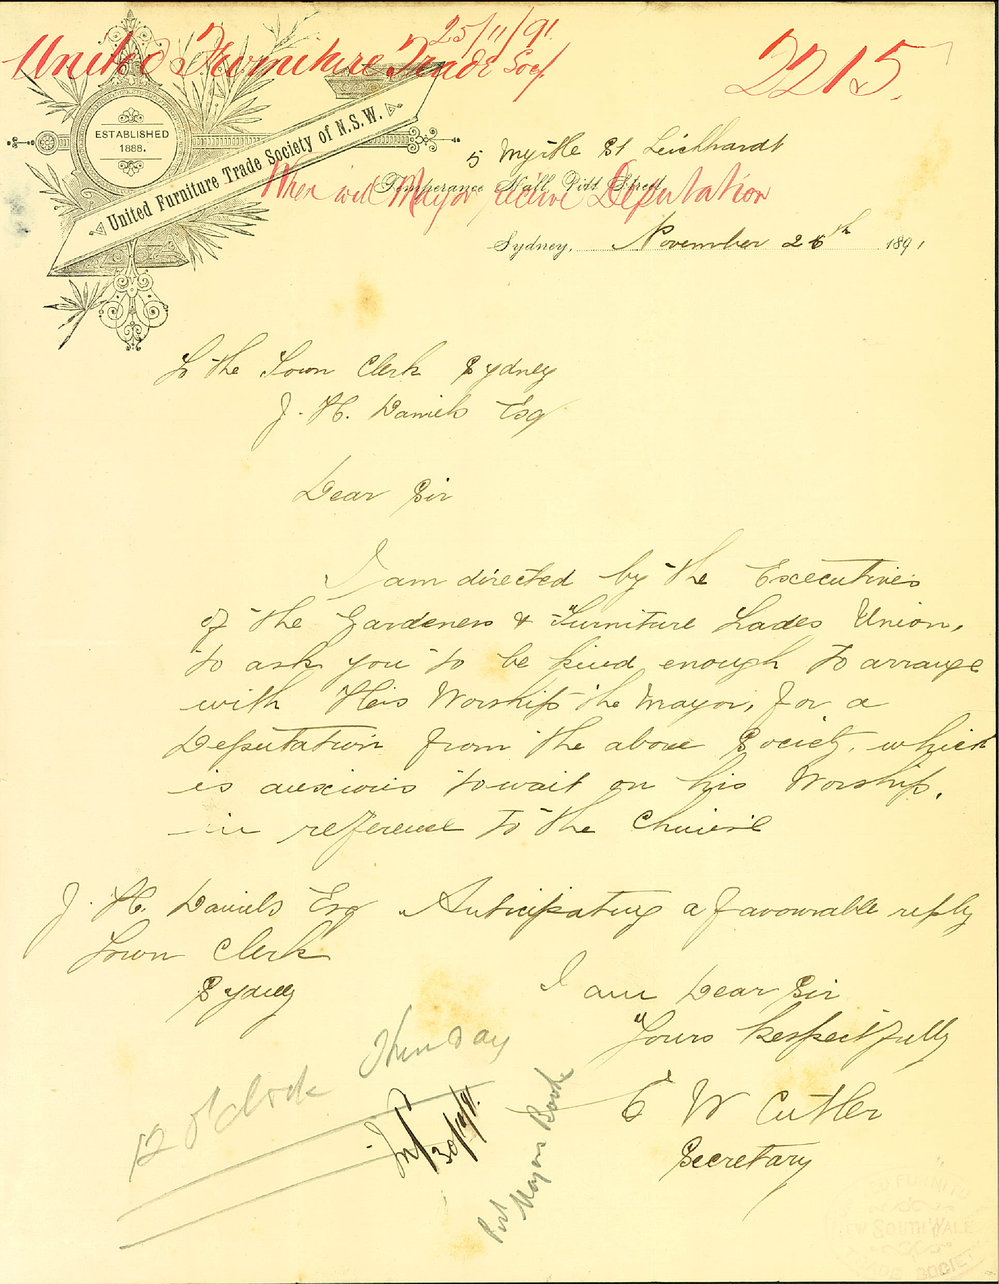 25/11/91
United Furniture Trade Socy
2215
ESTABLISHED
1888.
United Furniture Trade Society of N.S.W.
5 Myrtle St Leichhardt
Temperance Hall, Pitt Street
When will Mayor receive Deputation
Sydney, November 26th 1891
To the Town Clerk Sydney
J. H. Daniels Esq
Dear Sir
I am directed by the Excecutives
of the Gardeners & Furniture Trades Union,
to ask you to be kind enough to arrange
with His Worship the Mayor, for a
Deputation from the above Society, which
is auxcious to wait on his Worship,
in reference to the Chinese
J. H. Daniels Esq
Town Clerk
Sydney
Anticipating a favourable reply
I am Dear Sir
Yours Respectfully
E W Cutler
Secretary
12 o'clock Thursday
30/11/91
Put Mayors Book
NEW SOUTH WALE
SOCIET